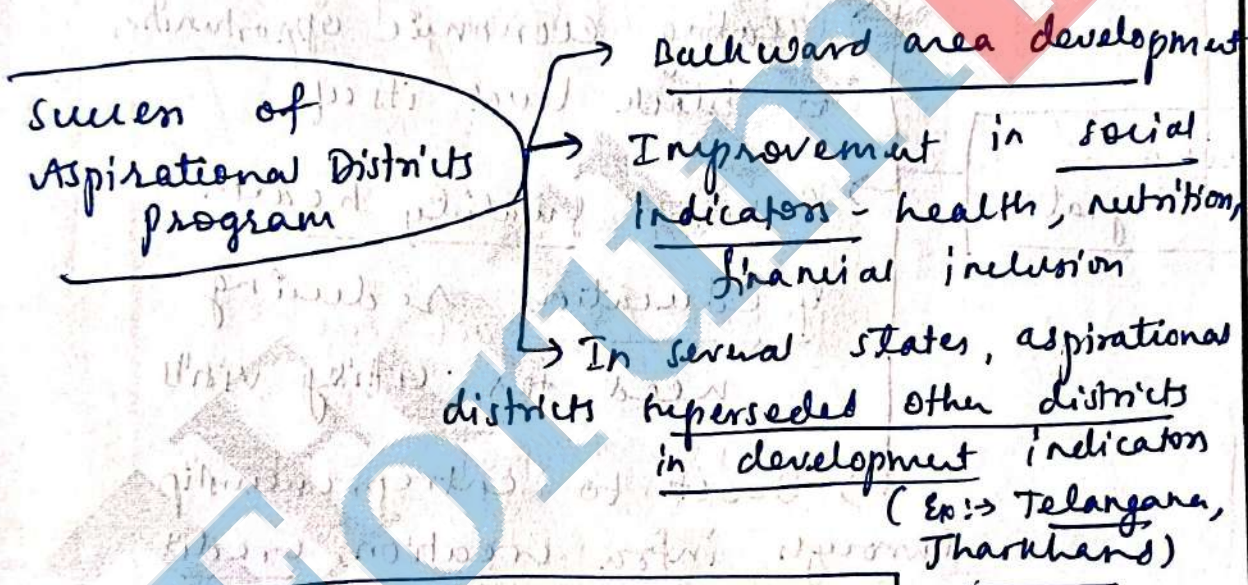 Success of
Aspirational Districts
program
→ Backward area development
→ Improvement in social
indicators - health, nutrition,
financial inclusion
→ In several states, aspirational
districts superseded other districts
in development indicators
(Ex:→ Telangana,
Jharkhand)
Forum